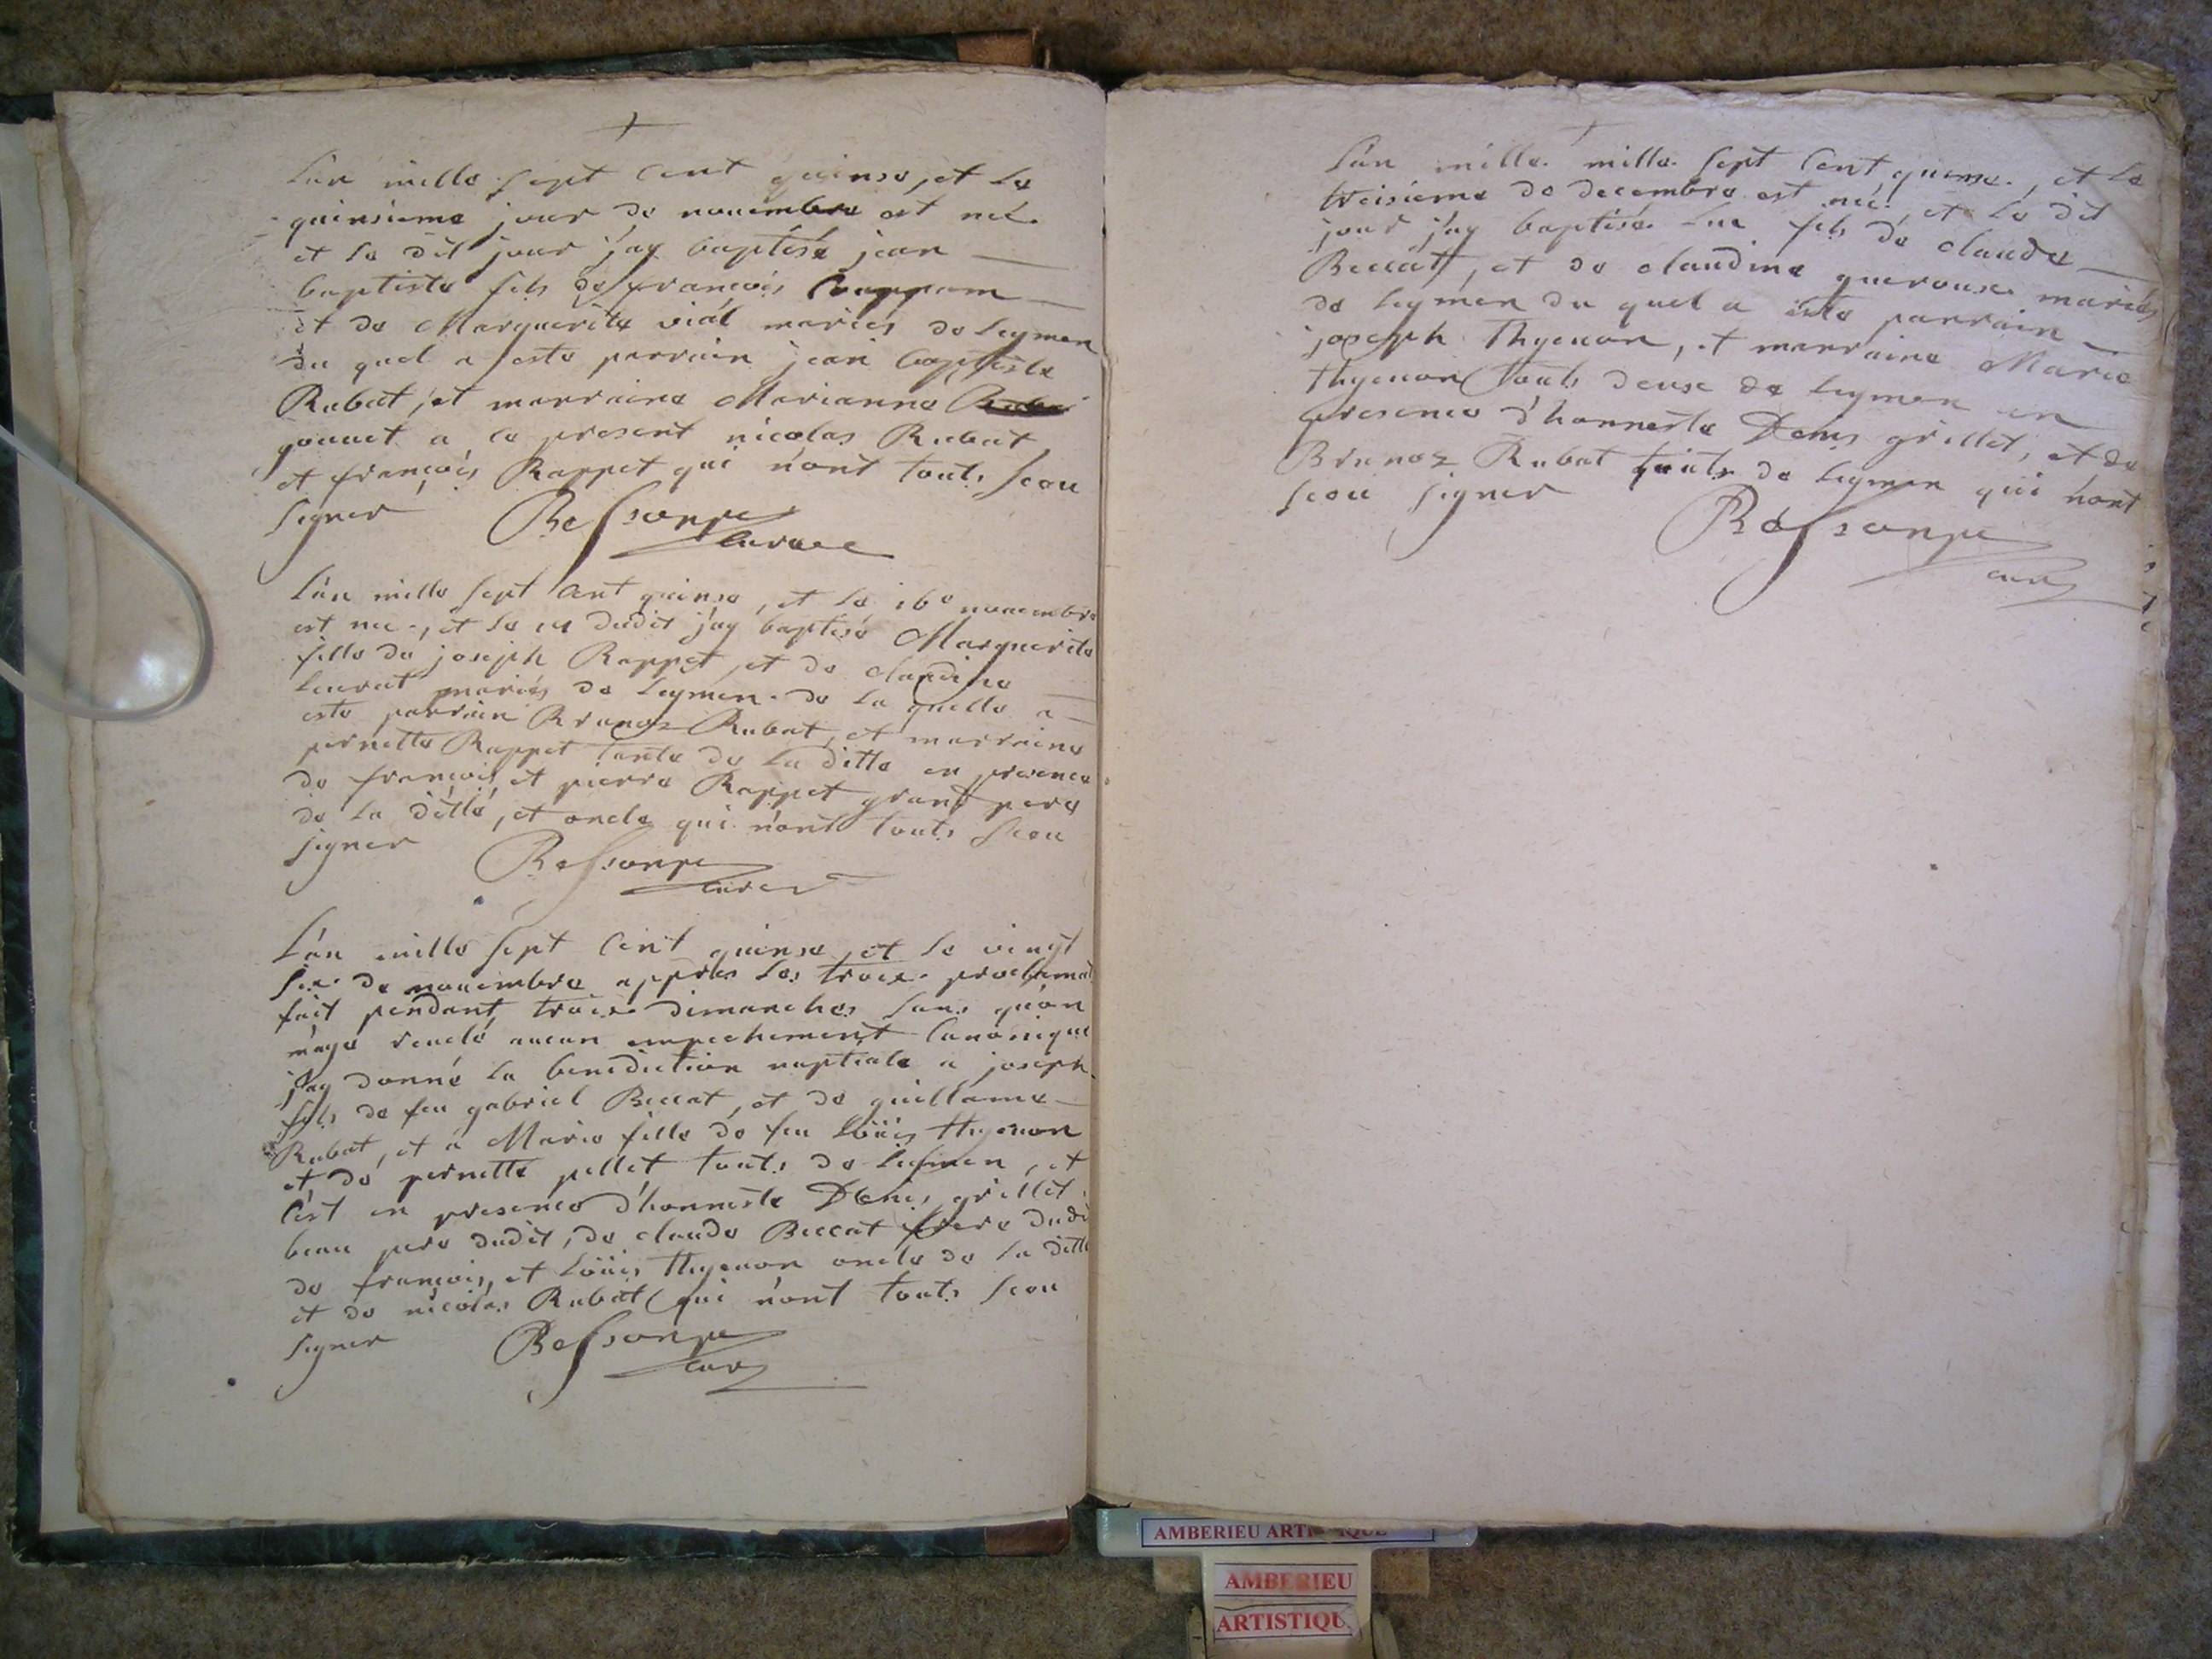 L'an mille sept Cent quinse, et le
quinsieme jour de nouembre est né
et le dit jour j'ay baptisé jean
baptiste fils de françois
et de Marguerite viál mariés de leymen
du quel a esté parrain jean baptiste
Rubat, et marraine Marianne
gouuet a ce present nicolas Rubat
et françois Rappet qui n'ont touts sceu
signer Bessonpe
curé
L'an mille sept Cent quinse, et le 16e nouembre
est née, et le dudit j'ay baptisé Marguerite
fille de joseph Rappet, et de claudine
leurat mariés de leymen de la quelle a
esté parrain Brunoz Rubat, et marraine
pernette Rappet tante de la ditte en presence
de françois, et pierre Rappet grant pere
de la ditte, et oncle qui n'ont touts sceu
signer Bessonpe
curé
L'an mille sept Cent quinse, et le vingt
six de nouembre apprés les troix proclamat
fait pendant troix dimanches sans qu'on
m'aye reuelé aucun empechement Canonique
j'ay donné la benediction nuptiale a joseph
fils de feu gabriel Beccat, et de guillame
Rubat, et a Marie fille de feu Loüis thyeuon
et de pernette pellet touts de leymen, et
c'est en presence d'honneste Denis grillet
beau pere dudit, de claude Beccat frere dudi
de françois, et Loüis thyeuon oncle de la ditte
et de nicolas Rubat qui n'ont touts sceu
signer Bessonpe
curé
L'an mille mille sept Cent quinse, et le
treisieme de decembre est né, et le dit
jour j'ay baptisé fils de claude
Beccat, et de claudine mariés
de leymen du quel a esté parrain
joseph Thyeuon, et marraine Marie
thyeuon touts deux de leymen en
presence d'honneste Denis grillet, et de
Brunoz Rubat touts de leymen qui n'ont
sceu signer Bessonpe
curé
AMBERIEU ARTISTIQUE
AMBERIEU
ARTISTIQU